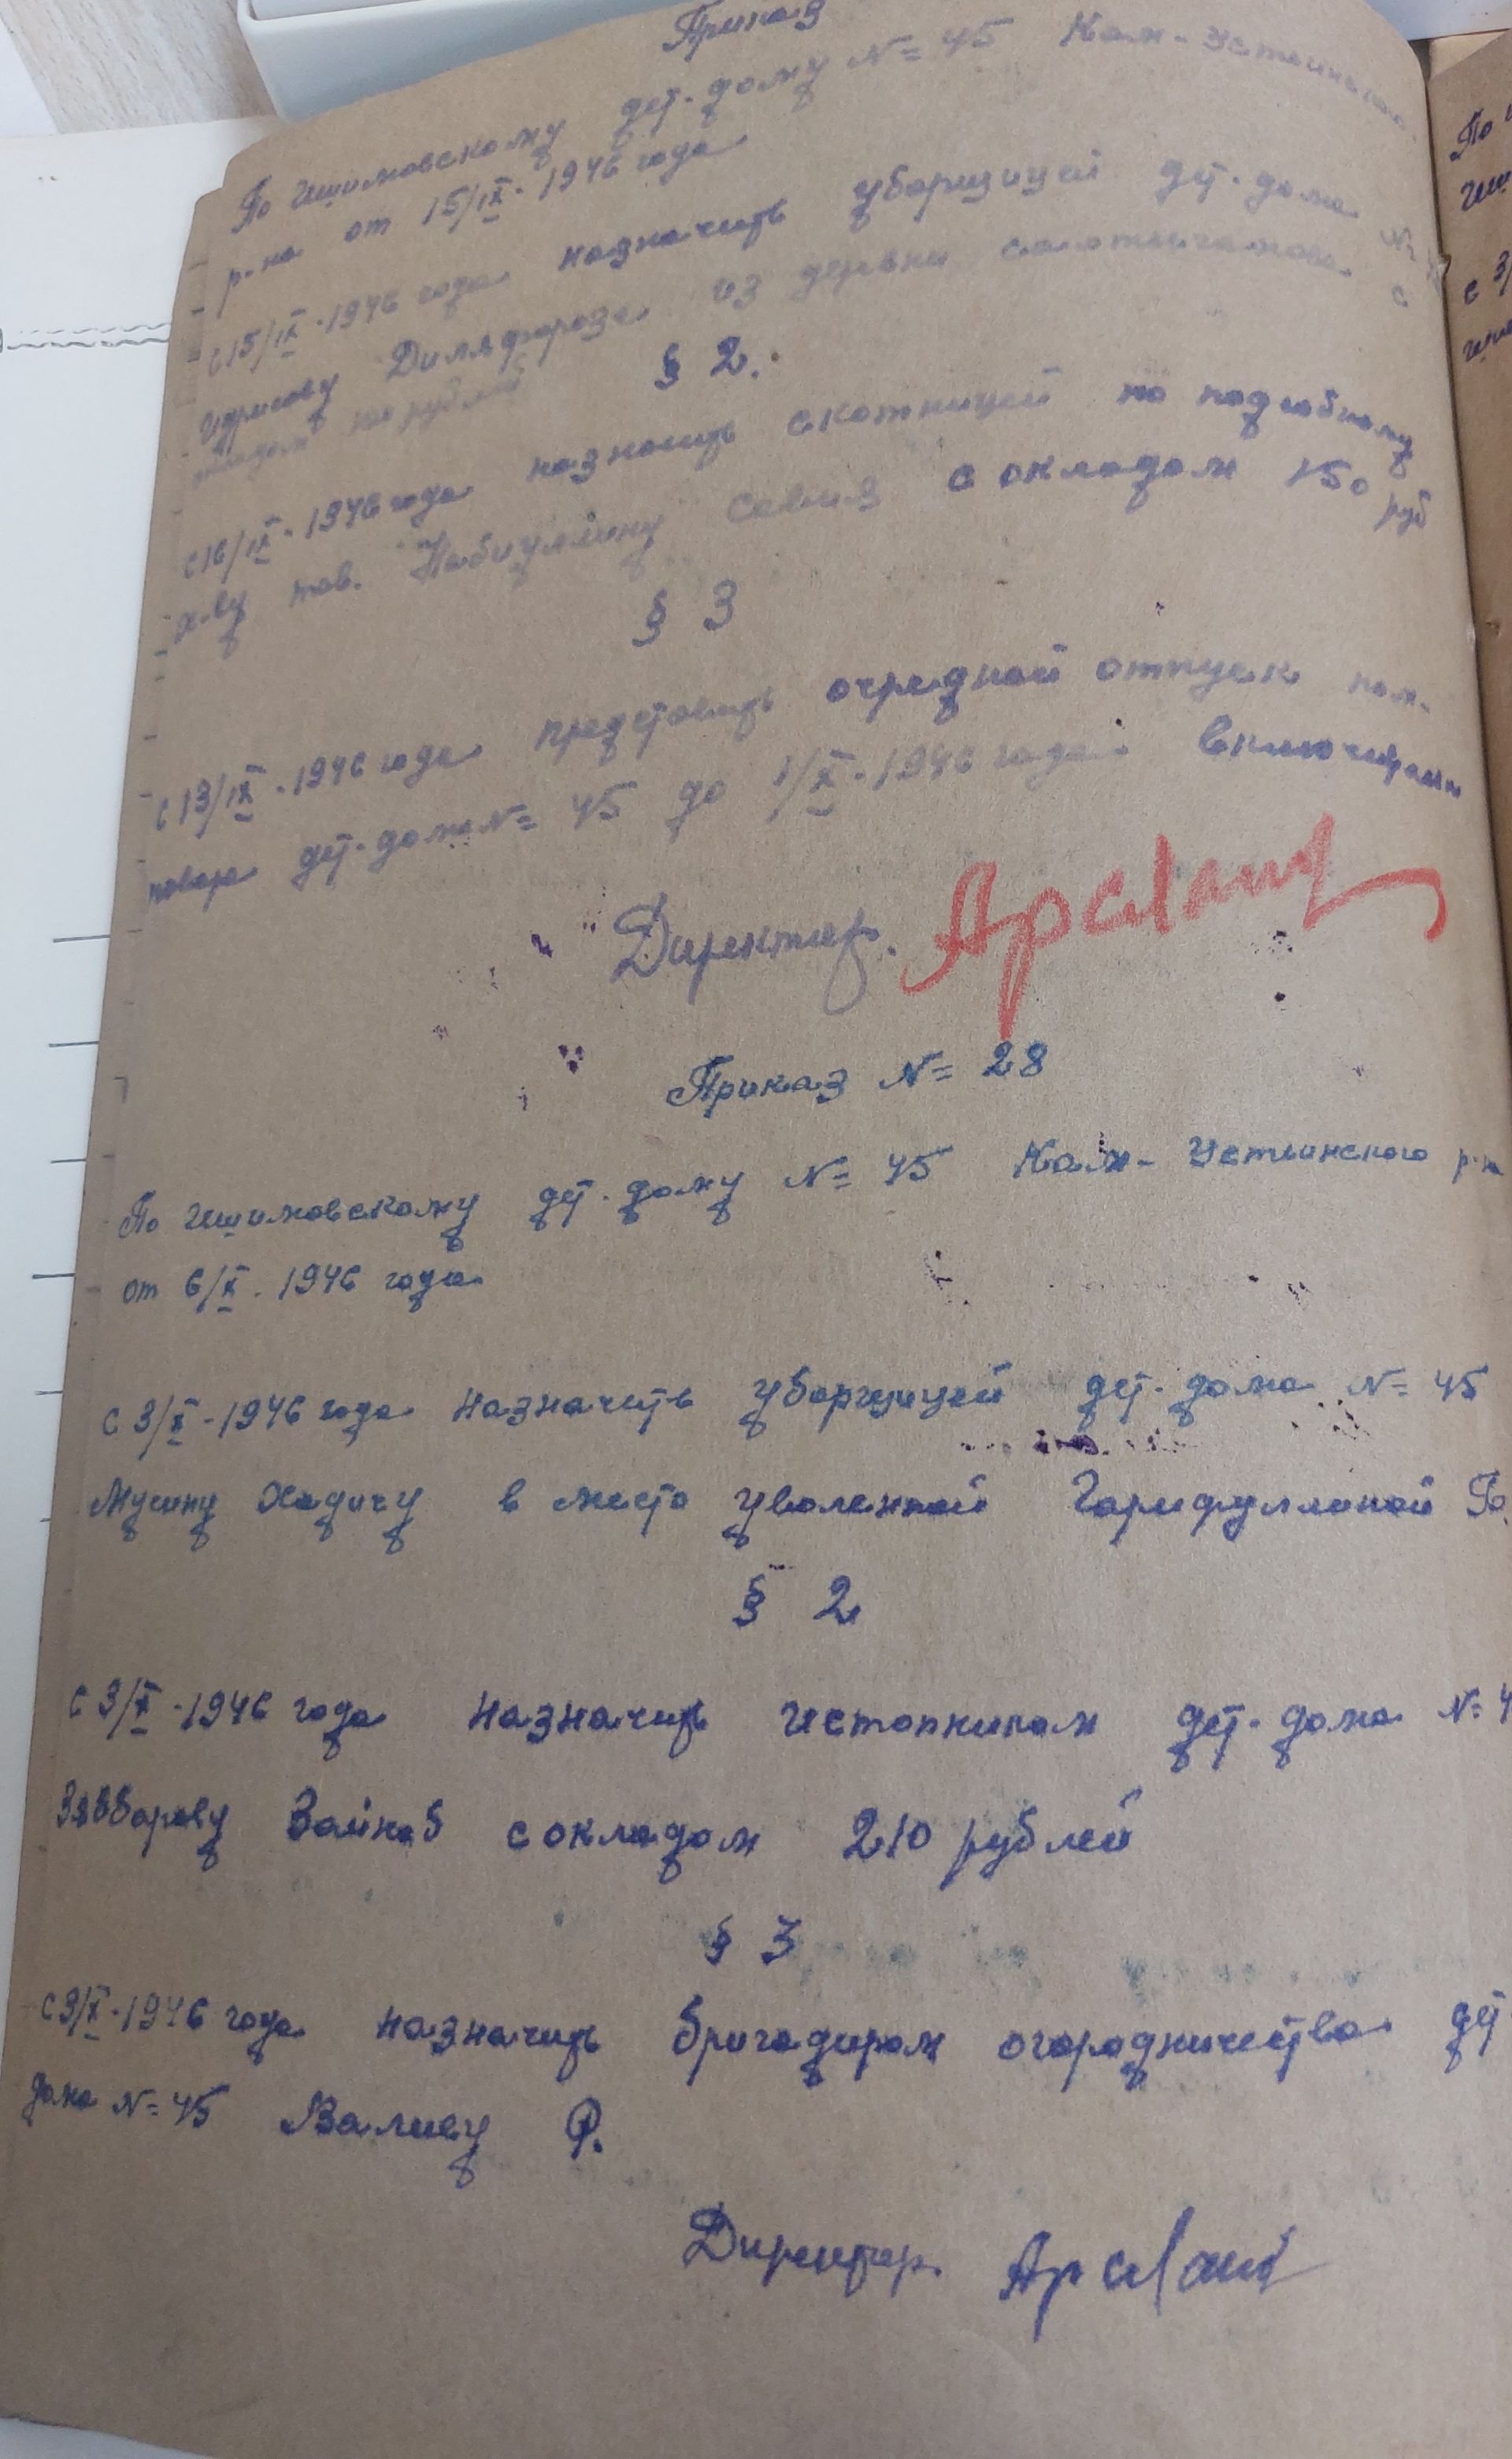 Приказ
По Ишимовскому дет. дому № 45 Кам-Устьинского
р-на от 15/IX. 1946 года
с 15/IX. 1946 года назначить уборщицей дет. дома №
Идрисову Диляфрозе из деревни с
окладом рублей
§ 2.
с 16/IX. 1946 года назначить скотницей по подсобному
х-ву тов. Набиуллину с окладом 150 руб
§ 3
с 13/IX. 1946 года представить очредной отпуск пом.
повара дет. дома № 45 до 1/X. 1946 года включительно
Директор. Арслан
Приказ № 28
По Ишимовскому дет. дому № 45 Кам- Устьинского р-на
от 6/X. 1946 года
с 3/X. 1946 года назначить уборщицей дет. дома № 45
Мусину Хадичу в место уволенной Гарифуллиной Га
§ 2
с 3/X. 1946 года назначить истопником дет. дома № 4
Зяббарову Зайнаб с окладом 210 рублей
§ 3
с 3/X. 1946 года назначить бригадиром огородничества дет
дома № 45 Валиеву Ф.
Директор. Арслан
По
Иши
с 3/